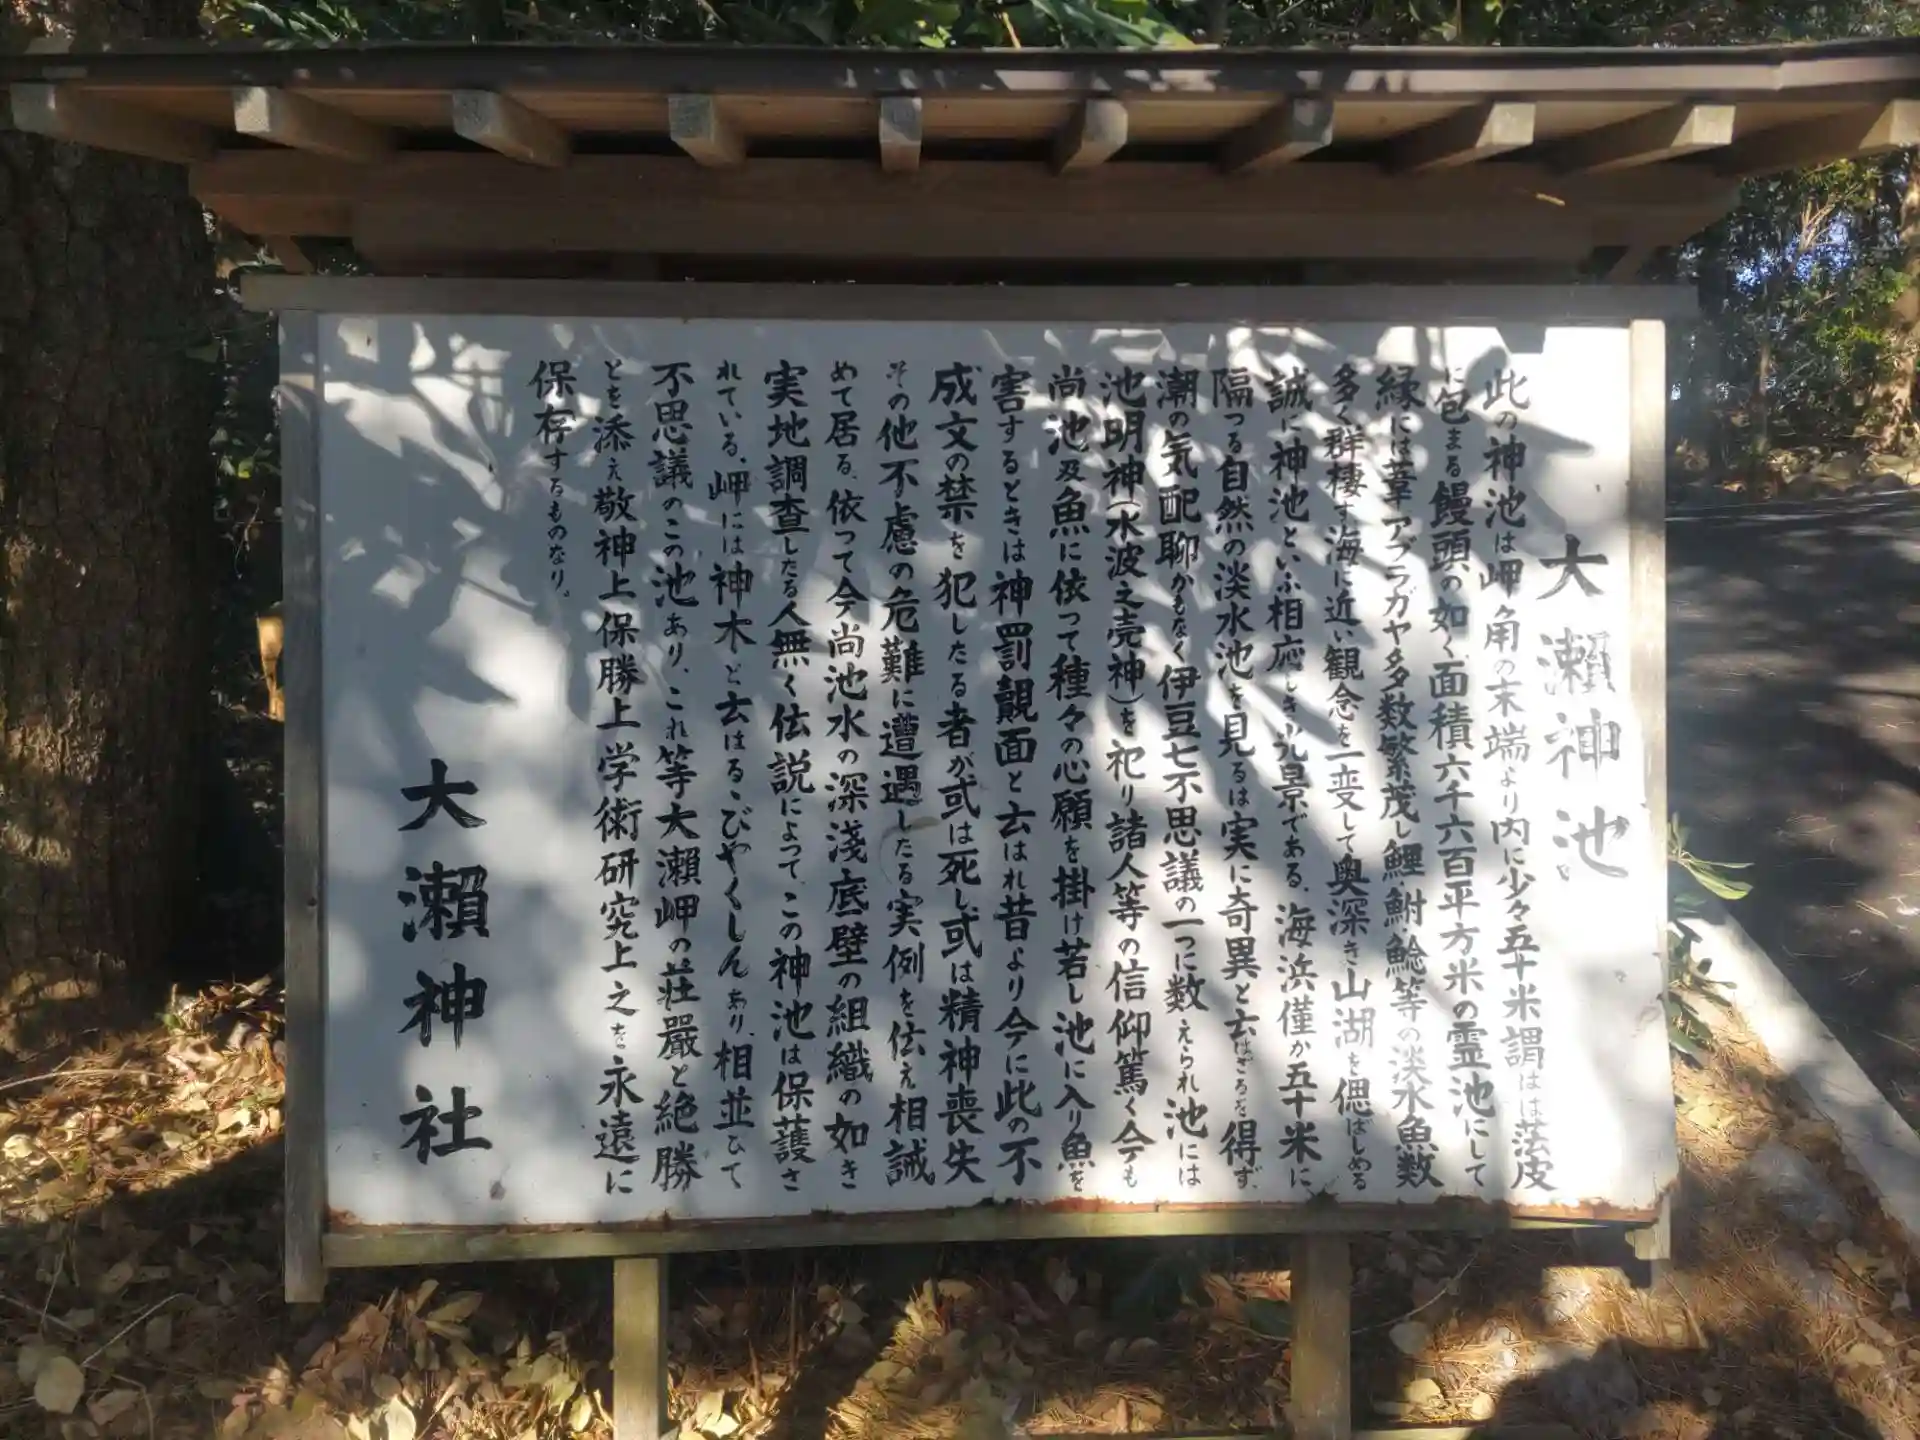 大瀬神池
此の神池は岬角の末端より内に少々五十米謂はば薄皮
に包まる饅頭の如く、面積六千六百平方米の霊池にして
縁には葦アブラガヤ多数繁茂し鯉・鮒・鯰等の淡水魚数
多く群棲す海に近い観念を一変して奥深き山湖を偲ばしめる
誠に神池といふ相応しき光景である、海浜僅か五十米に
隔つる自然の淡水池を見るは実に奇異と云はざるを得ず、
潮の気配聊かもなく伊豆七不思議の一つに数えられ池には
池明神(水波之売神)を祀り諸人等の信仰篤く今も
尚池及魚に依つて種々の心願を掛け若し池に入り魚を
害するときは神罰覿面と云はれ昔より今に此の不
成文の禁を犯したる者が或は死し或は精神喪失
その他不慮の危難に遭遇したる実例を伝え相誡
めて居る、依って今尚池水の深淺底壁の組織の如き
実地調査したる人無く伝説によって、この神池は保護さ
れている、岬には神木と云はるゝびやくしんあり、相並ひて
不思議のこの池あり、これ等大瀬岬の荘嚴と絶勝
とを添え敬神上保勝上学術研究上之を永遠に
保存するものなり。
大瀬神社